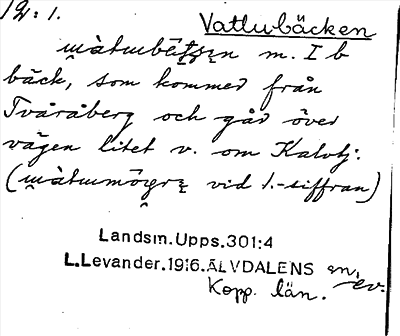 12:1.
Vatlubäcken
m. I b
bäck, som kommer från
Tvåråberg och går över
vägen litet v. om Kalvtj.
( vid 1.-siffran)
Landsm.Upps.301:4
L.Levander.1916.ÄLVDALENS sn, ev.
Kopp. län.